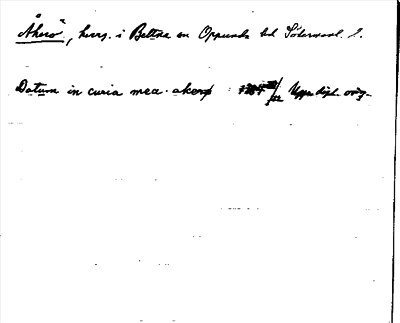 Åkerö, herrg. i Bettna sn Oppunda hd Södermanl. l.
Datum in curia mea akerø 1/22 Uppa dipl. orig.